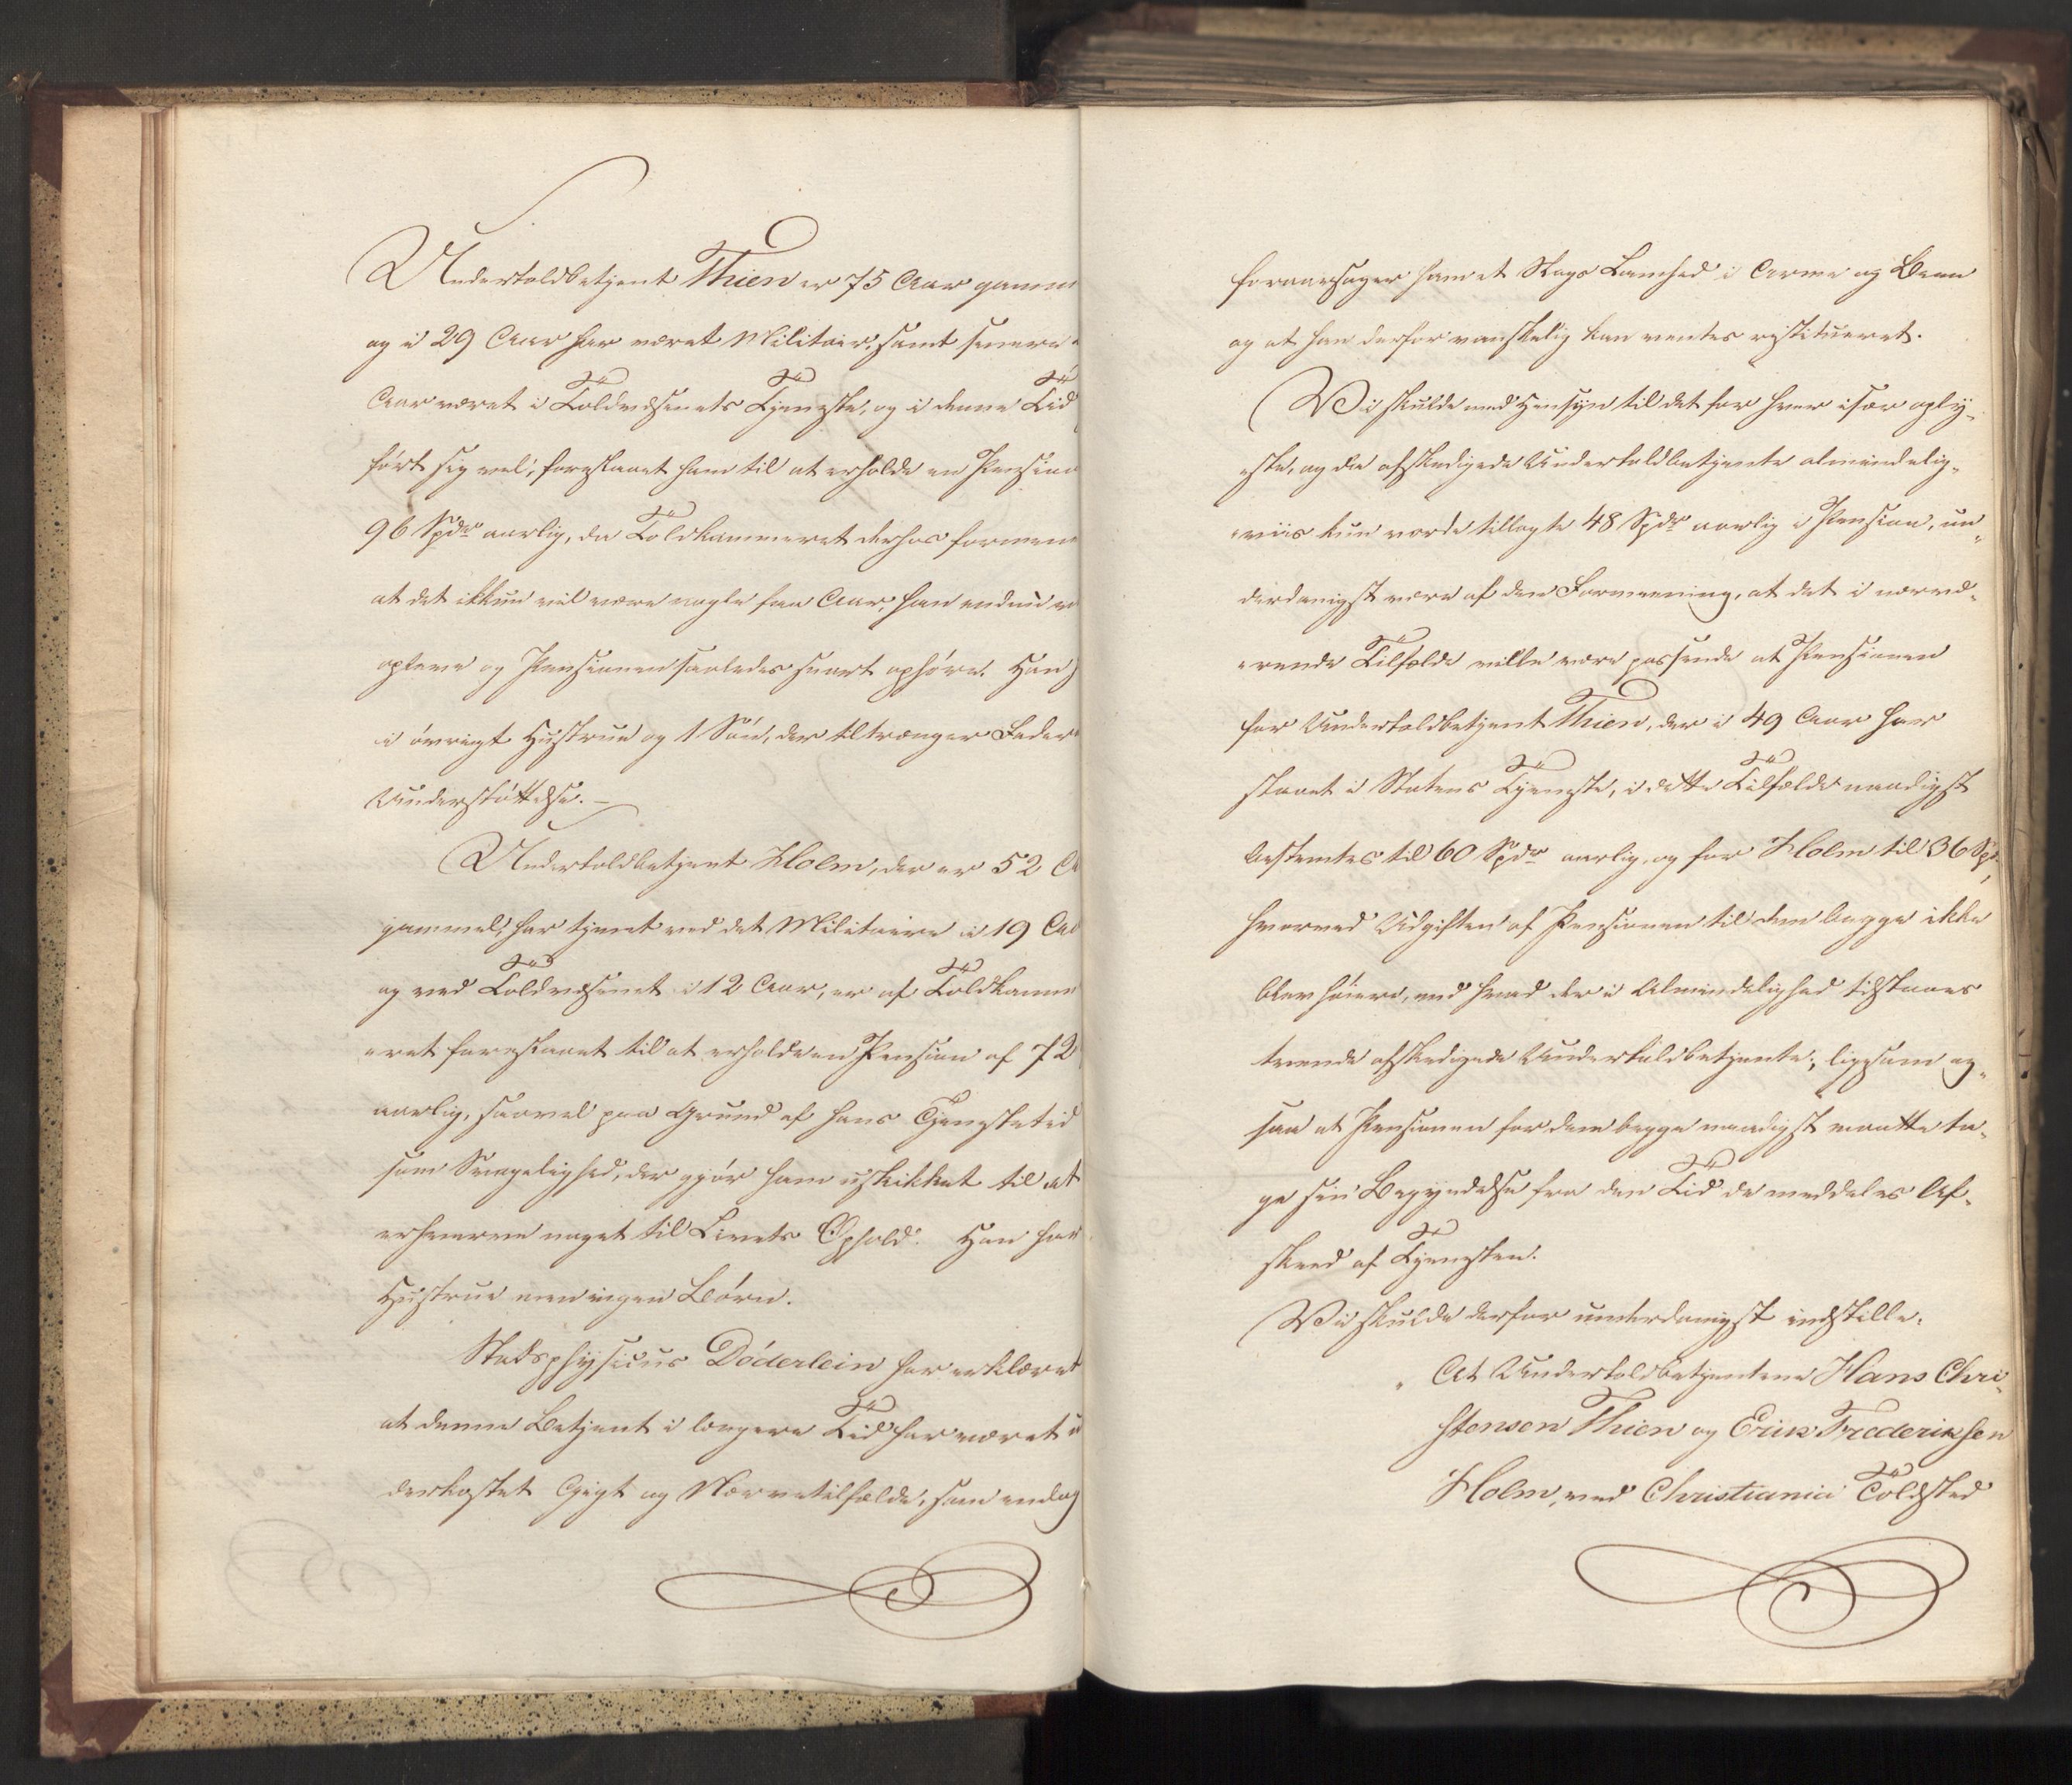 Undertoldbetjent Thien er 75 Aar gamm
og i 29 Aar har været Militair, samt senere
Aar været i Toldvæsenets Tjeneste, og i denne Tid
ført sig vel, foreslaaet ham til at erholde en Pension
96 Spdr aarlig, da Toldkammeret derhos formen
at det ikkun vil være nogle faa Aar, han endnu
opleve og Pensionen saaledes snart ophøre. Han
i øvrigt Hustrue og 1 Søn, der tiltrænger Fader
Understøttelse. –
Undertoldbetjent Holm, der er 52 A
gammel, har tjent ved det Militaire i 19 Aa
og ved Toldvæsenet i 12 Aar, er af Toldkamme
eret foreslaaet til at erholde en Pension af 72
aarlig, saavel paa Grund af hans Tjenestetid
som Svagelighed, der gjør ham uskikket til at
erhverve noget til Livets Ophold. Han har
Hustrue men ingen Børn.
Stadsphysicus Döderlein har erklæret
at denne Betjent i længere Tid har været u
derkastet Gigt og Nervetilfælde, som endog
foraarsager ham et Slags Lamhed i Arme og Been
og at han derfor vanskelig kan ventes restitueret.
Vi skulde med Hensyn til det for hver især oply-
ste, og da afskedigede Undertoldbetjente almindelig-
viis kun vorde tillagte 48 Spdr aarlig i Pension, un-
derdanigst være af den Formening, at det i nærvæ-
rende Tilfælde ville være passende at Pensionen
for Undertoldbetjent Thien, der i 49 Aar har
staaet i Statens Tjeneste, i dette Tilfælde naadigst
bestemtes til 60 Spdr aarlig, og for Holm til 36 Spd,
hvorved Udgiften af Pensionen til dem begge ikke
blev høiere, end hvad der i Almindelighed tilstaaes
tvende afskedigede Undertoldbetjente; ligesom og-
saa at Pensionen for dem begge naadigst maatte ta-
ge sin Begyndelse fra den Tid de meddeles Af-
skeed af Tjenesten.
Vi skulde derfor underdanigst indstille:
At Undertoldbetjentene Hans Chri-
stensen Thien og Erik Frederiksen
Holm, ved Christiania Toldsted